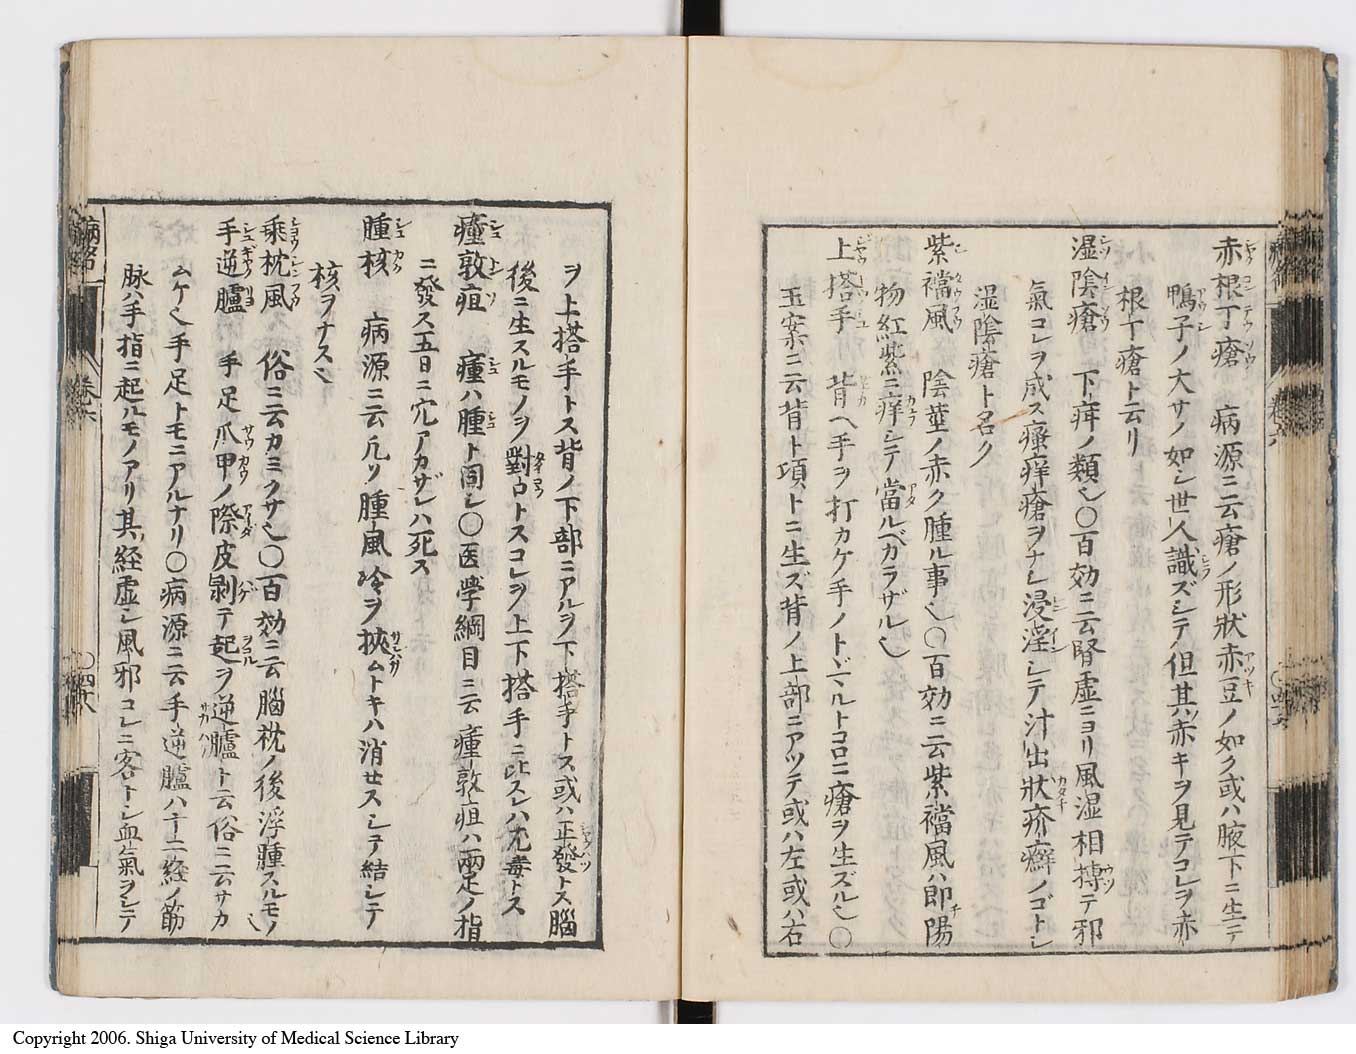 赤根丁瘡 病源ニ云瘡ノ形狀赤豆ノ如ク或ハ腋下ニ生テ
鴨子ノ大サノ如シ世人識ズシテ但其赤キヲ見テコレヲ赤
根丁瘡ト云リ
湿陰瘡 下疳ノ類也〇百効ニ云腎虚ニヨリ風湿相搏テ邪
氣コレヲ成ス瘙痒瘡ヲナシ浸淫シテ汁出狀疥癬ノゴトシ
湿陰瘡ト名ク
紫襠風 陰莖ノ赤ク腫ル事也〇百効ニ云紫襠風ハ即陽
物紅紫ニ痒シテ當ルベカラザル也
上搭手 背ヘ手ヲ打カケ手ノトヾマルトコロニ瘡ヲ生ズル也〇
玉案ニ云背ト項トニ生ズ背ノ上部ニアツテ或ハ左或ハ右
ヲ上搭手トス背ノ下部ニアルヲ下搭手トス或ハ正發トス腦
後ニ生スルモノヲ對口トスコレヲ上下搭手ニ比スレハ尤毒トス
瘇敦疽 瘇ハ腫ト同シ〇医学綱目ニ云瘇敦疽ハ兩足ノ指
ニ發ス五日ニ穴アカザレハ死ス
腫核 病源ニ云凡ソ腫風冷ヲ挾ムトキハ消セスシテ結シテ
核ヲナス也
乘枕風 俗ニ云カミクサ也〇百効ニ云腦枕ノ後浮腫スルモノ也
手逆臚 手足爪甲ノ際皮剝テ起ヲ逆臚ト云俗ニ云サカ
ムケ也手足トモニアルナリ〇病源ニ云手逆臚ハ十二経ノ筋
脉ハ手指ニ起ルモノアリ其経虚シ風邪コレニ客トシ血氣ヲシテ
病名
卷六
〇四十六